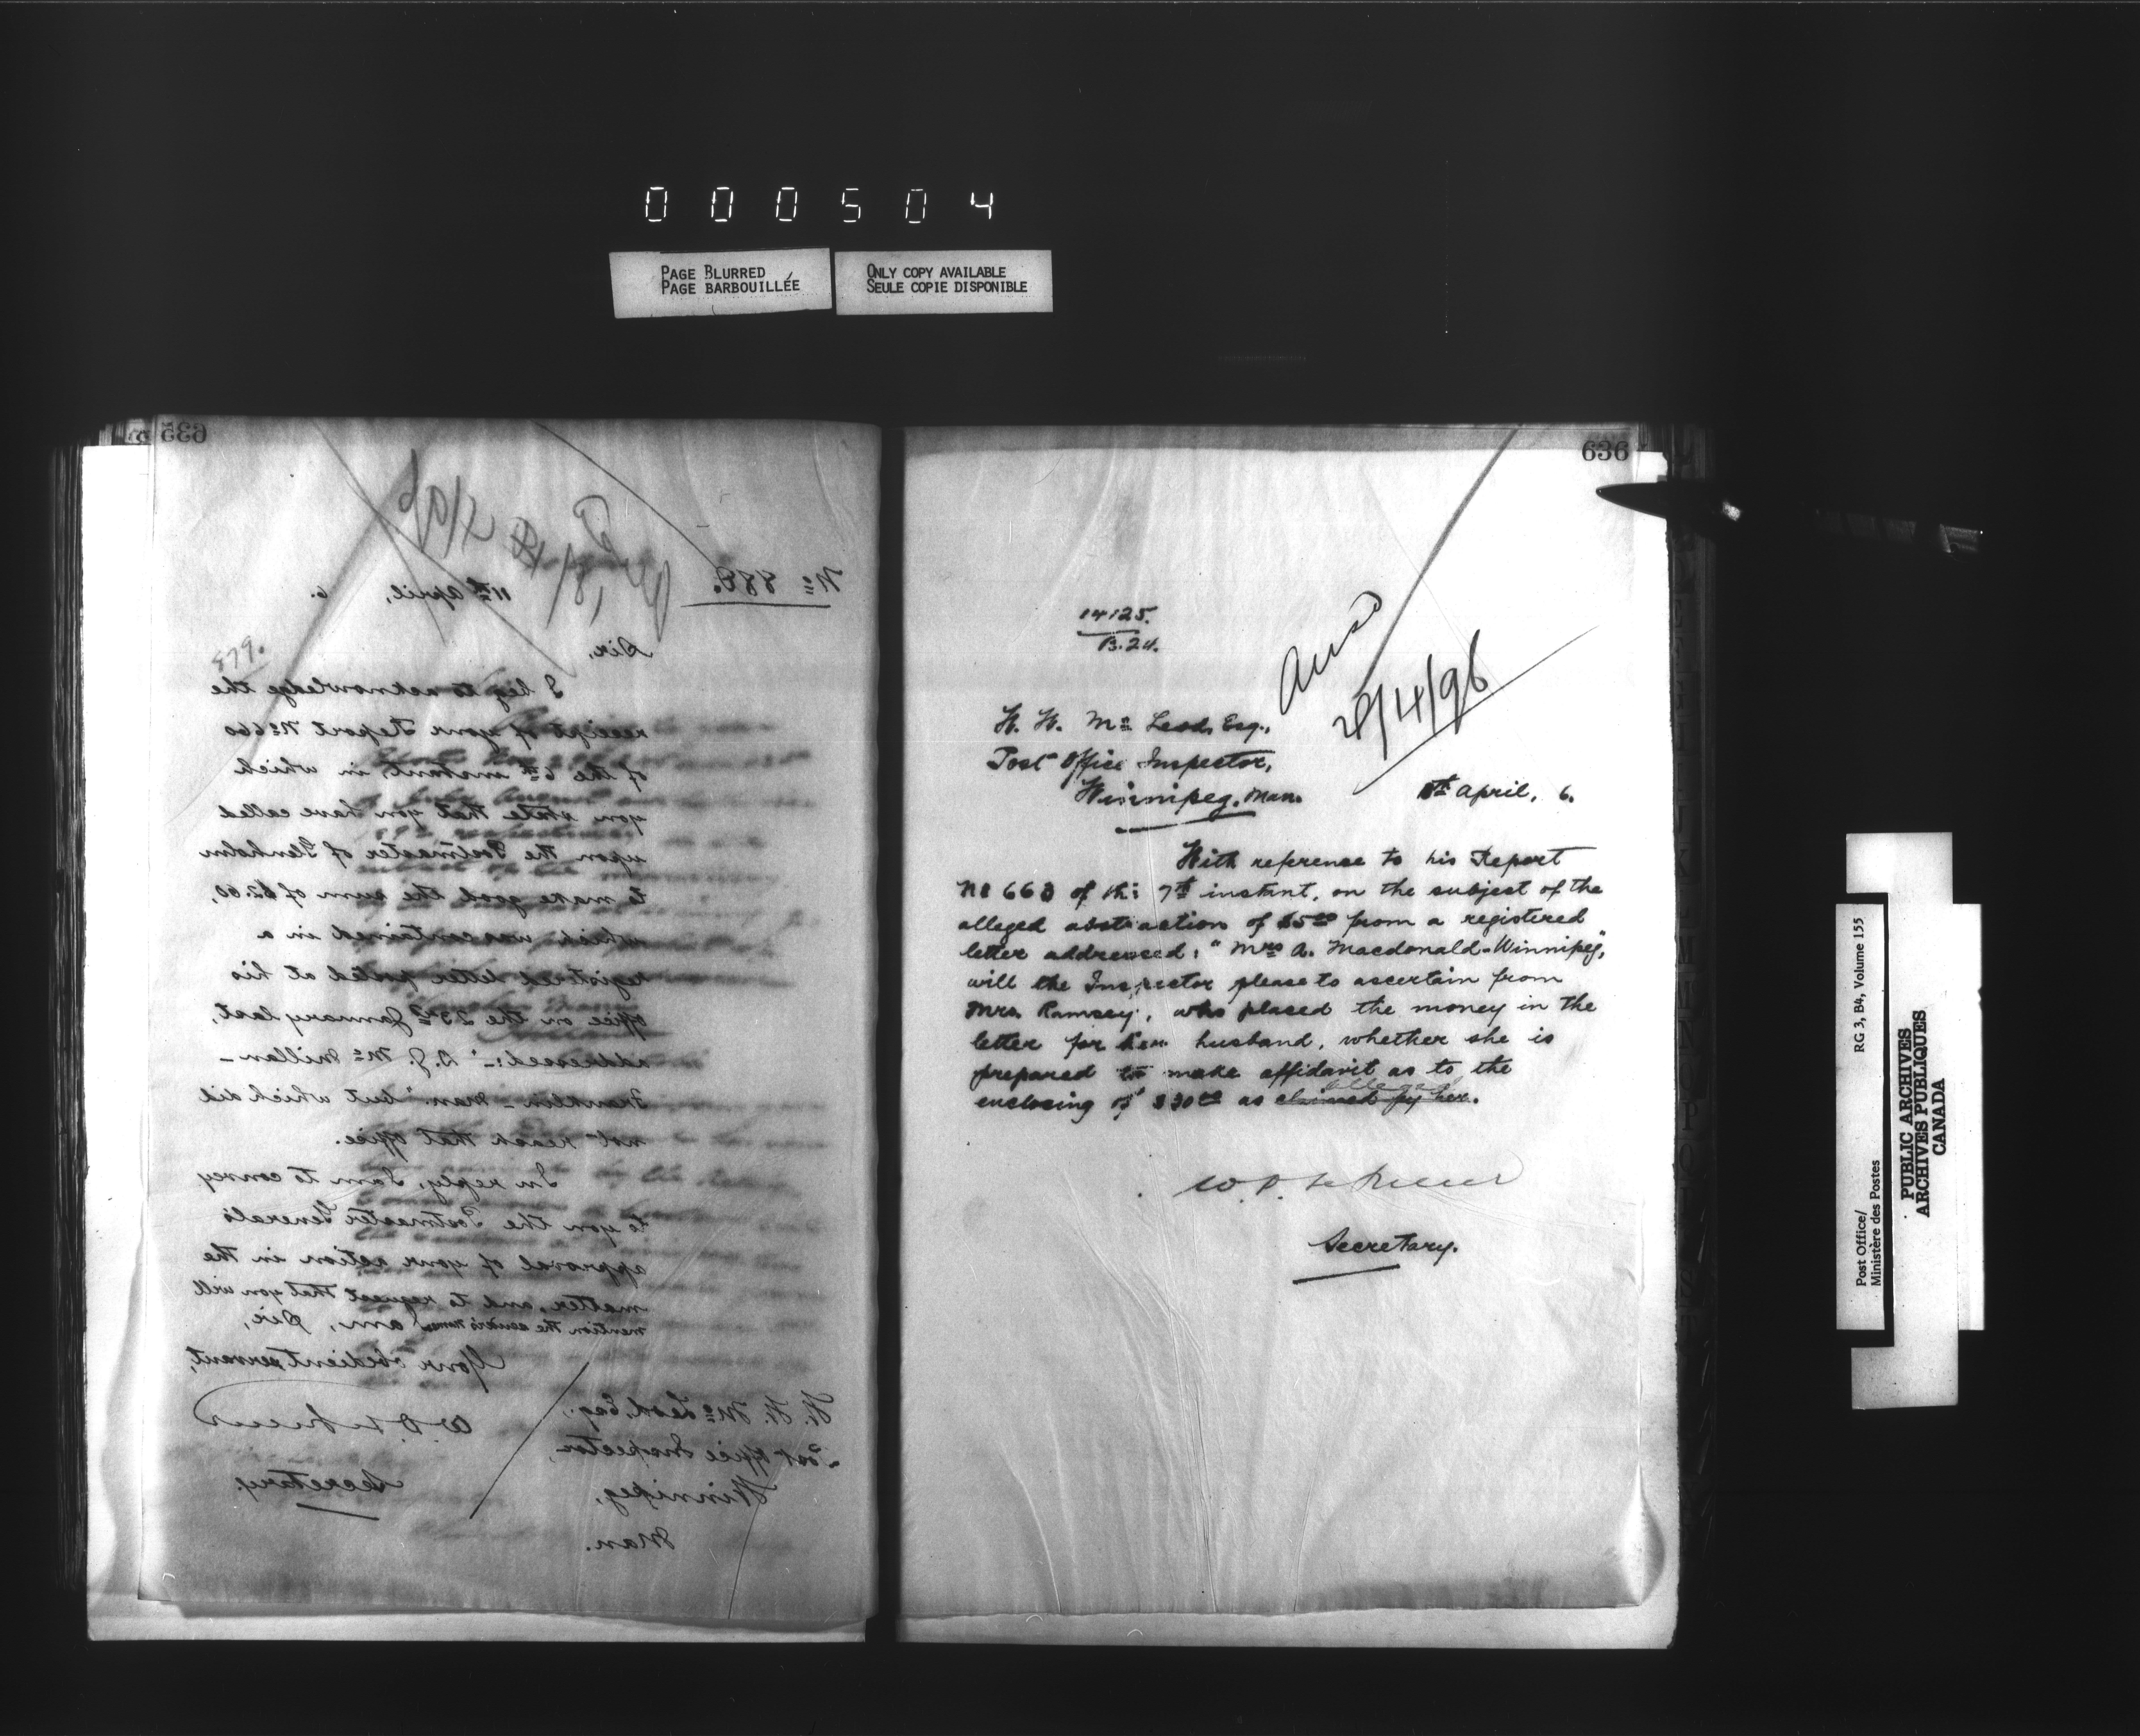 000504
PAGE BLURRED
PAGE BARBOUILLÉE
ONLY COPY AVAILABLE
SEULE COPIE DISPONIBLE
635
No 888.
11th April, 6.
Sir,
879.
I beg to acknowledge the
receipt of your Report No 660
of the 6th instant, in which
you state that you have called
upon the Postmaster of Glenholm
to make good the sum of $2.60,
which was contained in a
registered letter posted at his
office on the 23rd January last,
addressed:- "D. J. McMillan -
Franklin - Man." but which did
not reach that office.
In reply, I am to convey
to you the Postmaster General's
approval of your action in the
matter, and to request that you will
mention the sender's name. I am, Sir,
Your obedient servant,
Secretary.
W. W. McLeod, Esq.,
Post Office Inspector,
Winnipeg,
Man.
636
14125.
B.24.
Ansd
W. W. McLeod, Esq.,
Post Office Inspector,
Winnipeg, Man.
April, 6.
With reference to his Report
No 663 of the 7th instant, on the subject of the
alleged abstraction of $5.00 from a registered
letter addressed: "Mrs A. Macdonald - Winnipeg,"
will the Inspector please to ascertain from
Mrs. Ramsey, who placed the money in the
letter for her husband, whether she is
prepared to make affidavit as to the
alleged
enclosing of $30.00 as claimed by her.
Secretary.
Post Office/
Ministère des Postes
RG 3, B4, Volume 155
PUBLIC ARCHIVES
ARCHIVES PUBLIQUES
CANADA